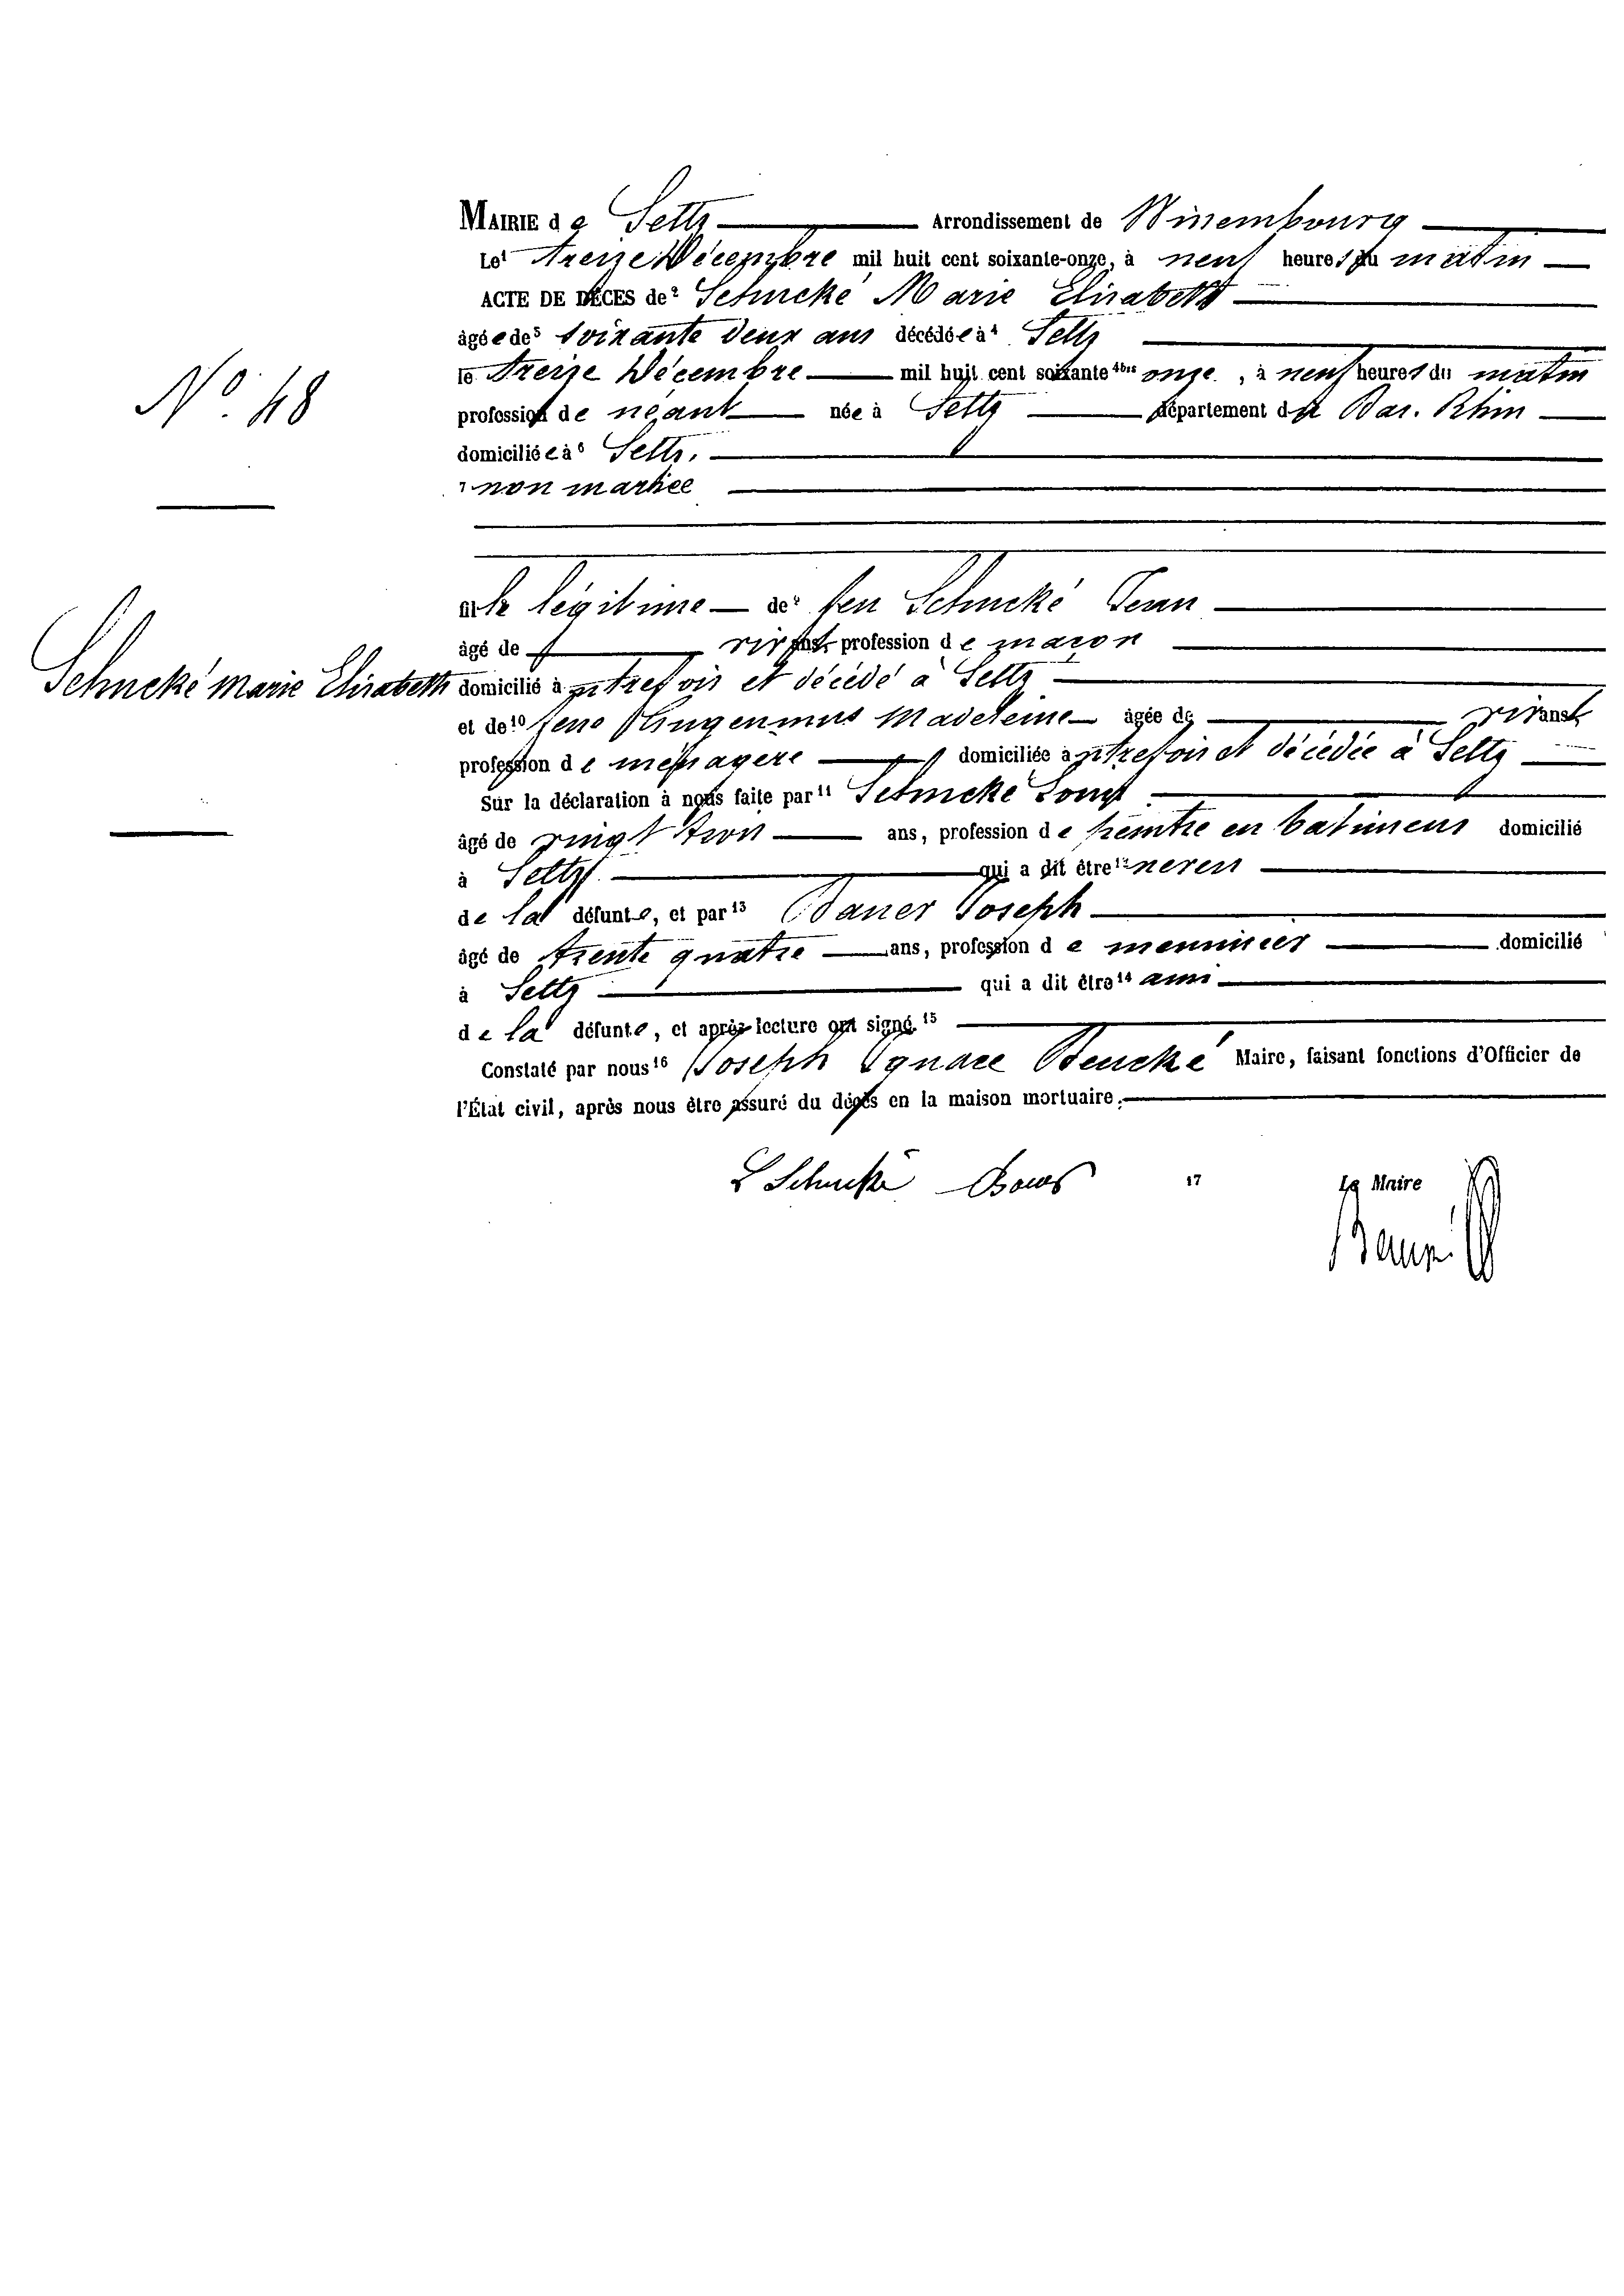 MAIRIE de Seltz Arrondissement de Wissembourg
Le¹ treize Décembre mil huit cent soixante-onze, à neuf heures du matin
ACTE DE DÉCÈS de² Schucké Marie Elisabeth
âgée de³ soixante deux ans décédée à⁴ Seltz
le treize Décembre mil huit cent soixante⁴ᵇⁱˢ onze, à neuf heures du matin
N° 48
profession de néant née à Seltz département du Bas. Rhin
domiciliée à⁶ Seltz.
⁷ non mariée
fille légitime de⁸ feu Schucké Jean
âgé de vivant profession de maçon
Schucké Marie Elisabeth
domicilié à autrefois et décédé à Seltz
et de¹⁰ feue Klingenmus Madeleine âgée de vivant
profession de ménagère domiciliée autrefois et décédée à Seltz
Sur la déclaration à nous faite par¹¹ Schucké Louis
âgé de vingt trois ans, profession de peintre en batimens domicilié
à Seltz qui a dit être¹² neveu
de la défunte, et par¹³ Bauer Joseph
âgé de trente quatre ans, profession de menuisier domicilié
à Seltz qui a dit être¹⁴ ami
de la défunte, et après lecture ont signé.¹⁵
Constaté par nous¹⁶ Joseph Ignace Maire, faisant fonctions d'Officier de
l'État civil, après nous être assuré du décès en la maison mortuaire.
L Schucké Bauer ¹⁷ Le Maire